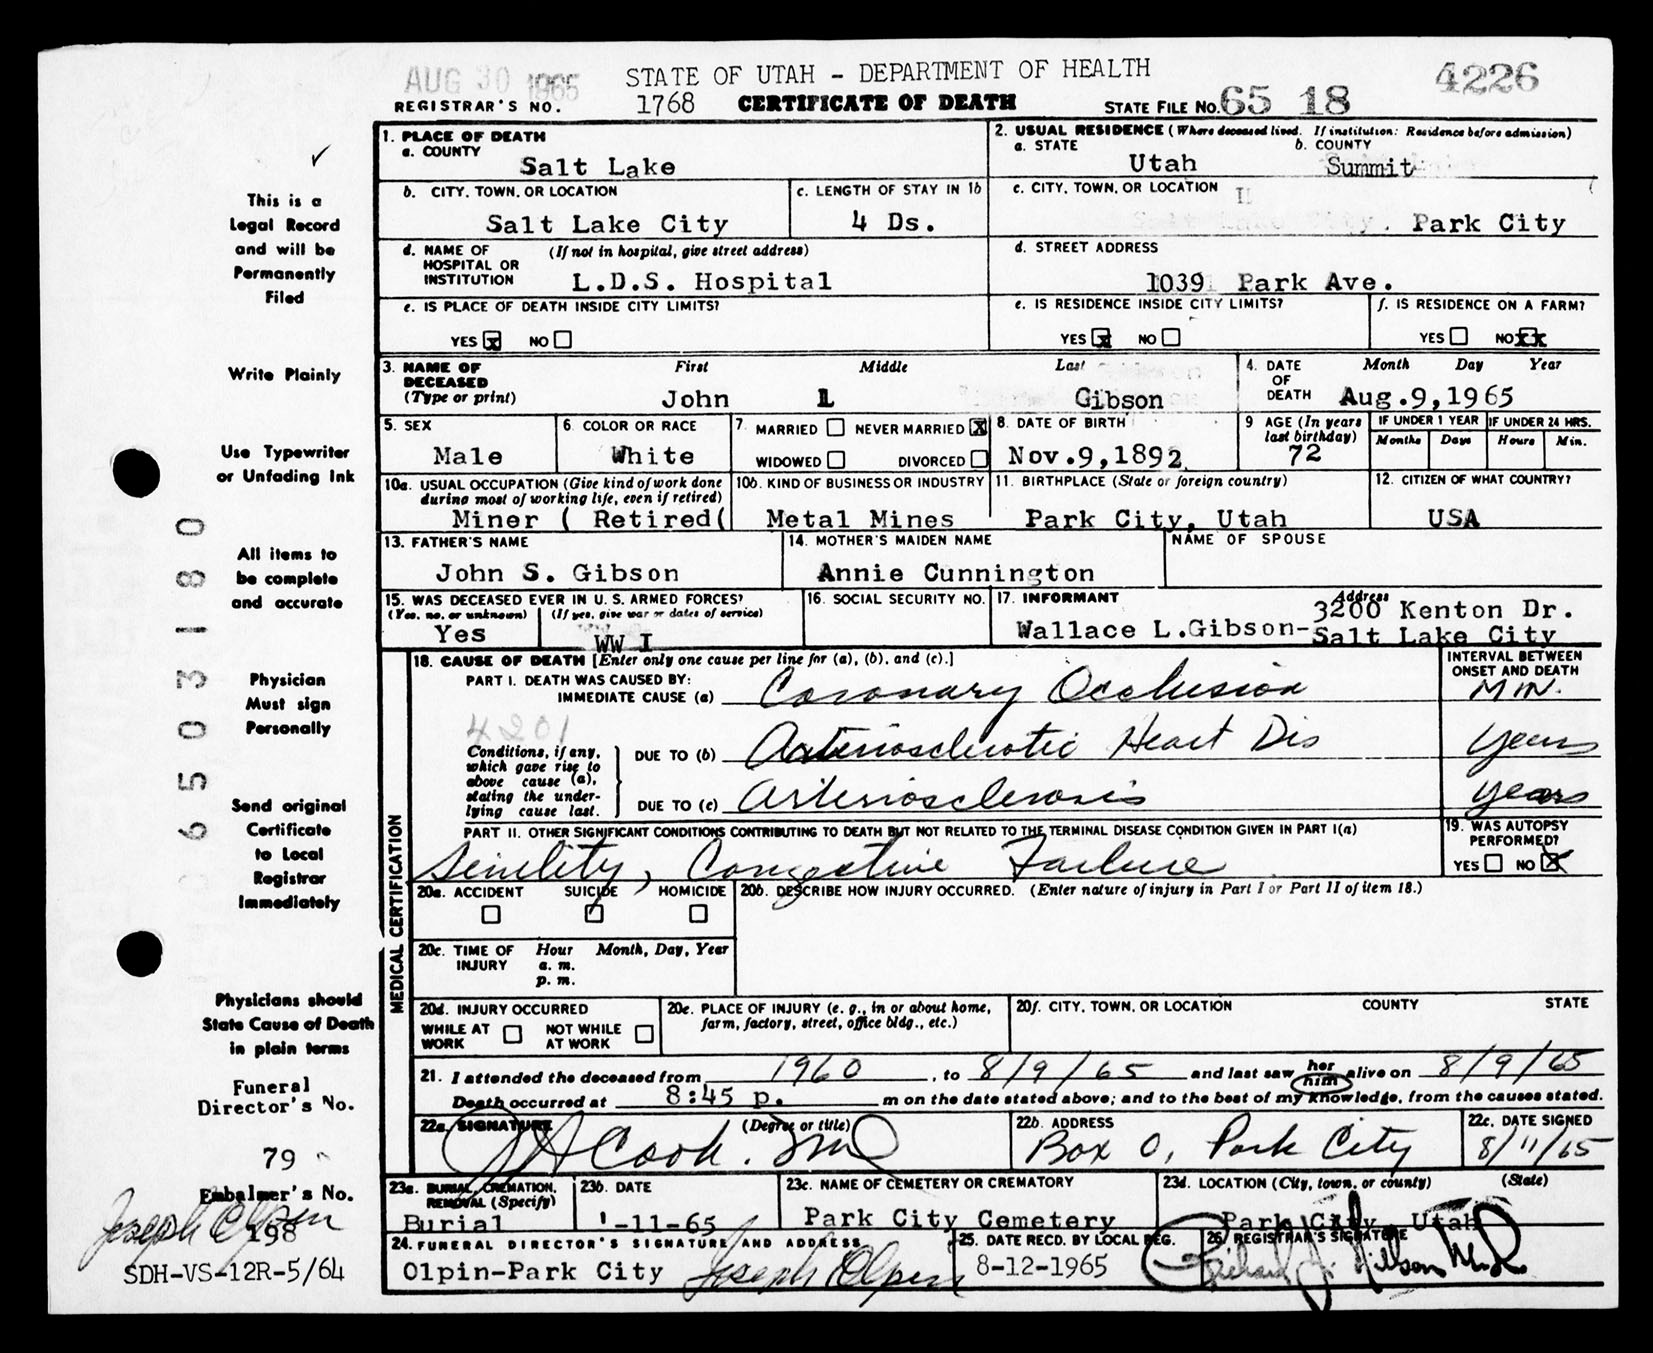 AUG 30 1965
STATE OF UTAH - DEPARTMENT OF HEALTH
4226
REGISTRAR'S NO. 1768 CERTIFICATE OF DEATH STATE FILE NO. 65 18
1. PLACE OF DEATH
a. COUNTY
Salt Lake
2. USUAL RESIDENCE (Where deceased lived. If institution: Residence before admission)
a. STATE b. COUNTY
Utah Summit
b. CITY, TOWN, OR LOCATION
Salt Lake City
c. LENGTH OF STAY IN 1b
4 Ds.
c. CITY, TOWN, OR LOCATION
Salt Lake City. Park City
d. NAME OF HOSPITAL OR INSTITUTION (If not in hospital, give street address)
L.D.S. Hospital
d. STREET ADDRESS
1039 Park Ave.
e. IS PLACE OF DEATH INSIDE CITY LIMITS?
YES x NO
e. IS RESIDENCE INSIDE CITY LIMITS?
YES x NO
f. IS RESIDENCE ON A FARM?
YES NO xx
3. NAME OF DECEASED (Type or print)
First Middle Last
John L Gibson
4. DATE OF DEATH
Month Day Year
Aug.9,1965
5. SEX
Male
6. COLOR OR RACE
White
7. MARRIED NEVER MARRIED X
WIDOWED DIVORCED
8. DATE OF BIRTH
Nov.9,1892
9 AGE (In years last birthday)
72
IF UNDER 1 YEAR IF UNDER 24 HRS.
Months Days Hours Min.
10a. USUAL OCCUPATION (Give kind of work done during most of working life, even if retired)
Miner ( Retired(
10b. KIND OF BUSINESS OR INDUSTRY
Metal Mines
11. BIRTHPLACE (State or foreign country)
Park City, Utah
12. CITIZEN OF WHAT COUNTRY?
USA
13. FATHER'S NAME
John S. Gibson
14. MOTHER'S MAIDEN NAME
Annie Cunnington
NAME OF SPOUSE
15. WAS DECEASED EVER IN U. S. ARMED FORCES?
(Yes, no, or unknown) (If yes, give war or dates of service)
Yes WW I
16. SOCIAL SECURITY NO.
17. INFORMANT Address
Wallace L.Gibson- 3200 Kenton Dr.
Salt Lake City
MEDICAL CERTIFICATION
18. CAUSE OF DEATH [Enter only one cause per line for (a), (b), and (c).]
INTERVAL BETWEEN ONSET AND DEATH
PART I. DEATH WAS CAUSED BY:
IMMEDIATE CAUSE (a) Coronary Occlusion MIN.
4201
Conditions, if any, which gave rise to above cause (a), stating the underlying cause last.
DUE TO (b) Arteriosclerotic Heart Dis years
DUE TO (c) Arteriosclerosis years
PART II. OTHER SIGNIFICANT CONDITIONS CONTRIBUTING TO DEATH BUT NOT RELATED TO THE TERMINAL DISEASE CONDITION GIVEN IN PART I(a)
Senility, Congestive Failure
19. WAS AUTOPSY PERFORMED?
YES NO X
20a. ACCIDENT SUICIDE HOMICIDE
20b. DESCRIBE HOW INJURY OCCURRED. (Enter nature of injury in Part I or Part II of item 18.)
20c. TIME OF INJURY Hour Month, Day, Year
a. m.
p. m.
20d. INJURY OCCURRED
WHILE AT WORK NOT WHILE AT WORK
20e. PLACE OF INJURY (e. g., in or about home, farm, factory, street, office bldg., etc.)
20f. CITY, TOWN, OR LOCATION COUNTY STATE
21. I attended the deceased from 1960, to 8/9/65 and last saw her him alive on 8/9/65
Death occurred at 8:45 p. m on the date stated above; and to the best of my knowledge, from the causes stated.
22a. SIGNATURE (Degree or title)
Cook. MD
22b. ADDRESS
Box O, Park City
22c. DATE SIGNED
8/11/65
23a. BURIAL, CREMATION, REMOVAL (Specify)
Burial
23b. DATE
-11-65
23c. NAME OF CEMETERY OR CREMATORY
Park City Cemetery
23d. LOCATION (City, town, or county) (State)
Park City Utah
24. FUNERAL DIRECTOR'S SIGNATURE AND ADDRESS
Olpin-Park City Joseph Olpin
25. DATE RECD. BY LOCAL REG.
8-12-1965
26 REGISTRAR'S SIGNATURE
This is a
Legal Record
and will be
Permanently
Filed
Write Plainly
Use Typewriter
or Unfading Ink
All items to
be complete
and accurate
Physician
Must sign
Personally
Send original
Certificate
to Local
Registrar
Immediately
Physicians should
State Cause of Death
in plain terms
Funeral
Director's No.
79
Embalmer's No.
Joseph Olpin
198
SDH-VS-12R-5/64
6503180